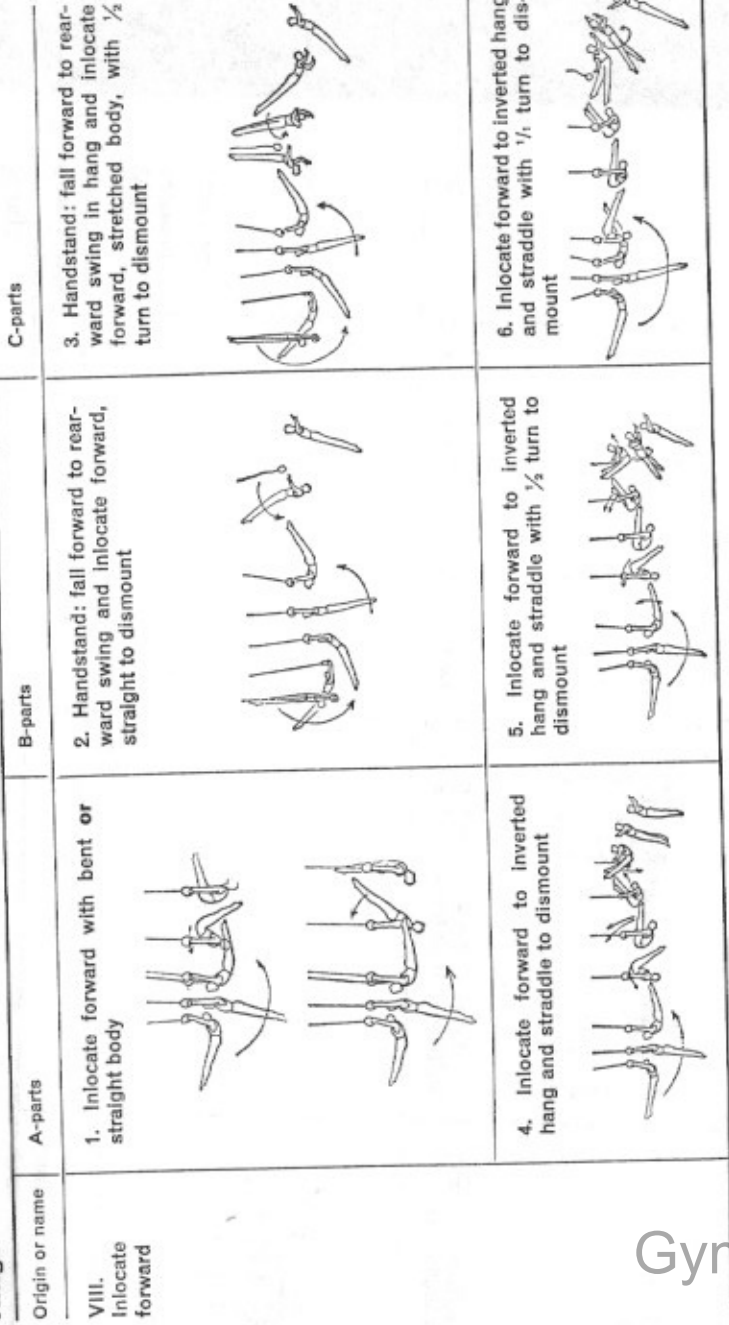 Origin or name
A-parts
B-parts
C-parts
VIII.
Inlocate
forward
1. Inlocate forward with bent or
straight body
2. Handstand: fall forward to rear-
ward swing and inlocate forward,
straight to dismount
3. Handstand: fall forward to rear-
ward swing in hang and inlocate
forward, stretched body, with ½
turn to dismount
4. Inlocate forward to inverted
hang and straddle to dismount
5. Inlocate forward to inverted
hang and straddle with ½ turn to
dismount
6. Inlocate forward to inverted hang
and straddle with ¹/₁ turn to dis-
mount
Gym